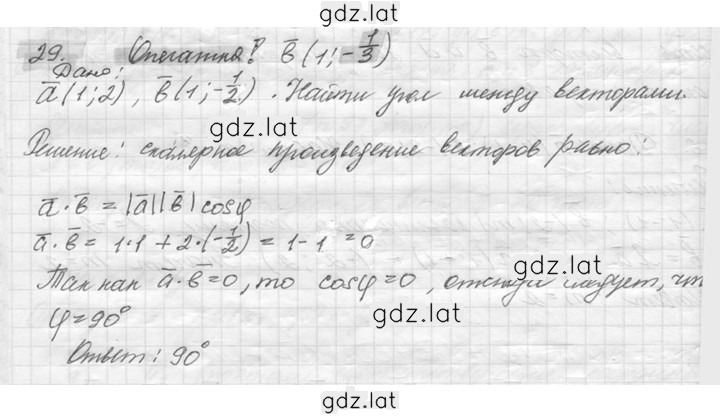 gdz.lat
29. Опечатка! b̄(1;-1/3)
gdz.lat
Дано:
ā(1;2), b̄(1;-1/2). Найти угол между векторами.
gdz.lat
Решение: скалярное произведение векторов равно:
ā·b̄ = |ā||b̄|cosφ
ā·b̄ = 1·1 + 2·(-1/2) = 1-1 =0
gdz.lat
Так как ā·b̄=0, то cosφ=0, отсюда следует, чт
φ=90°
gdz.lat
Ответ: 90°
gdz.lat